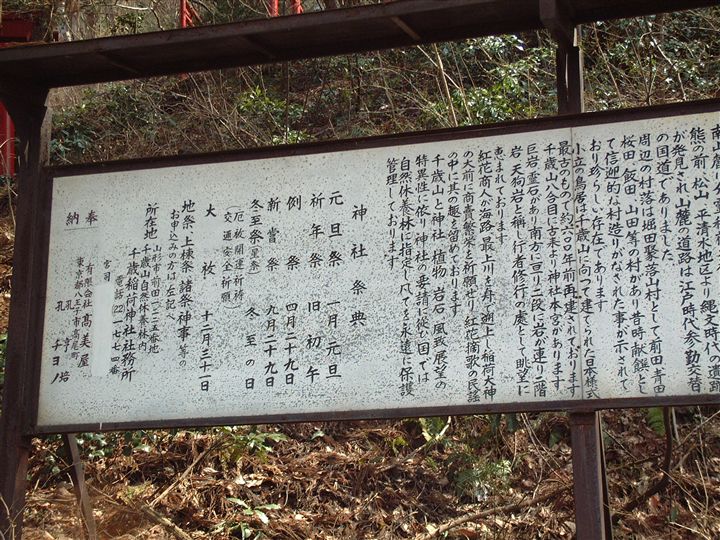 能の前 松山 平清水地区より縄文時代の遺跡
が発見され山麓の道路は江戸時代参勤交替
の国道でありました。
周辺の村落は堀田聚落山村として前田 青田
桜田 飯田 山田等の村があり昔時献饌と
て信迎的な村造りがなされた事が示されて
おり珍らしい存在であります
小立の鳥居は千歳山に向って建てられ日本様式
最古のもので約六〇〇年前再建されております
千歳山八合目に古来より神社本宮があります
巨岩霊石があり南方に亘り三段に岩が連り二階
岩 天狗岩と称し行者修行の処として眺望に
恵まれております
紅花商人が海路 最上川を舟で遡上し稲荷大神
の大前に商賣繁栄を祈願せり 紅花摘歌の民謡
の中に其の趣を留めております
千歳山と神社 植物 岩石 風致展望の
特異性に依り神社の要請に從い国では
自然休養林に指定し凡てを永遠に保護
管理しております
神社祭典
元旦祭 一月元旦
祈年祭 旧初午
例祭 四月二十九日
新嘗祭 九月二十九日
冬至祭(星祭) 冬至の日
(厄枚開運祈祷
交通安全祈願)
大枚 十二月三十一日
地祭 上棟祭 諸祭神事等の
お申込みの方は左記へ
所在地 山形市前田二ー二五番地
千歳山自然休養林内
千歳稲荷神社社務所
電話(22)一七七四番
宮司
奉納
有限会社 高美屋
東京都八王子市高尾町